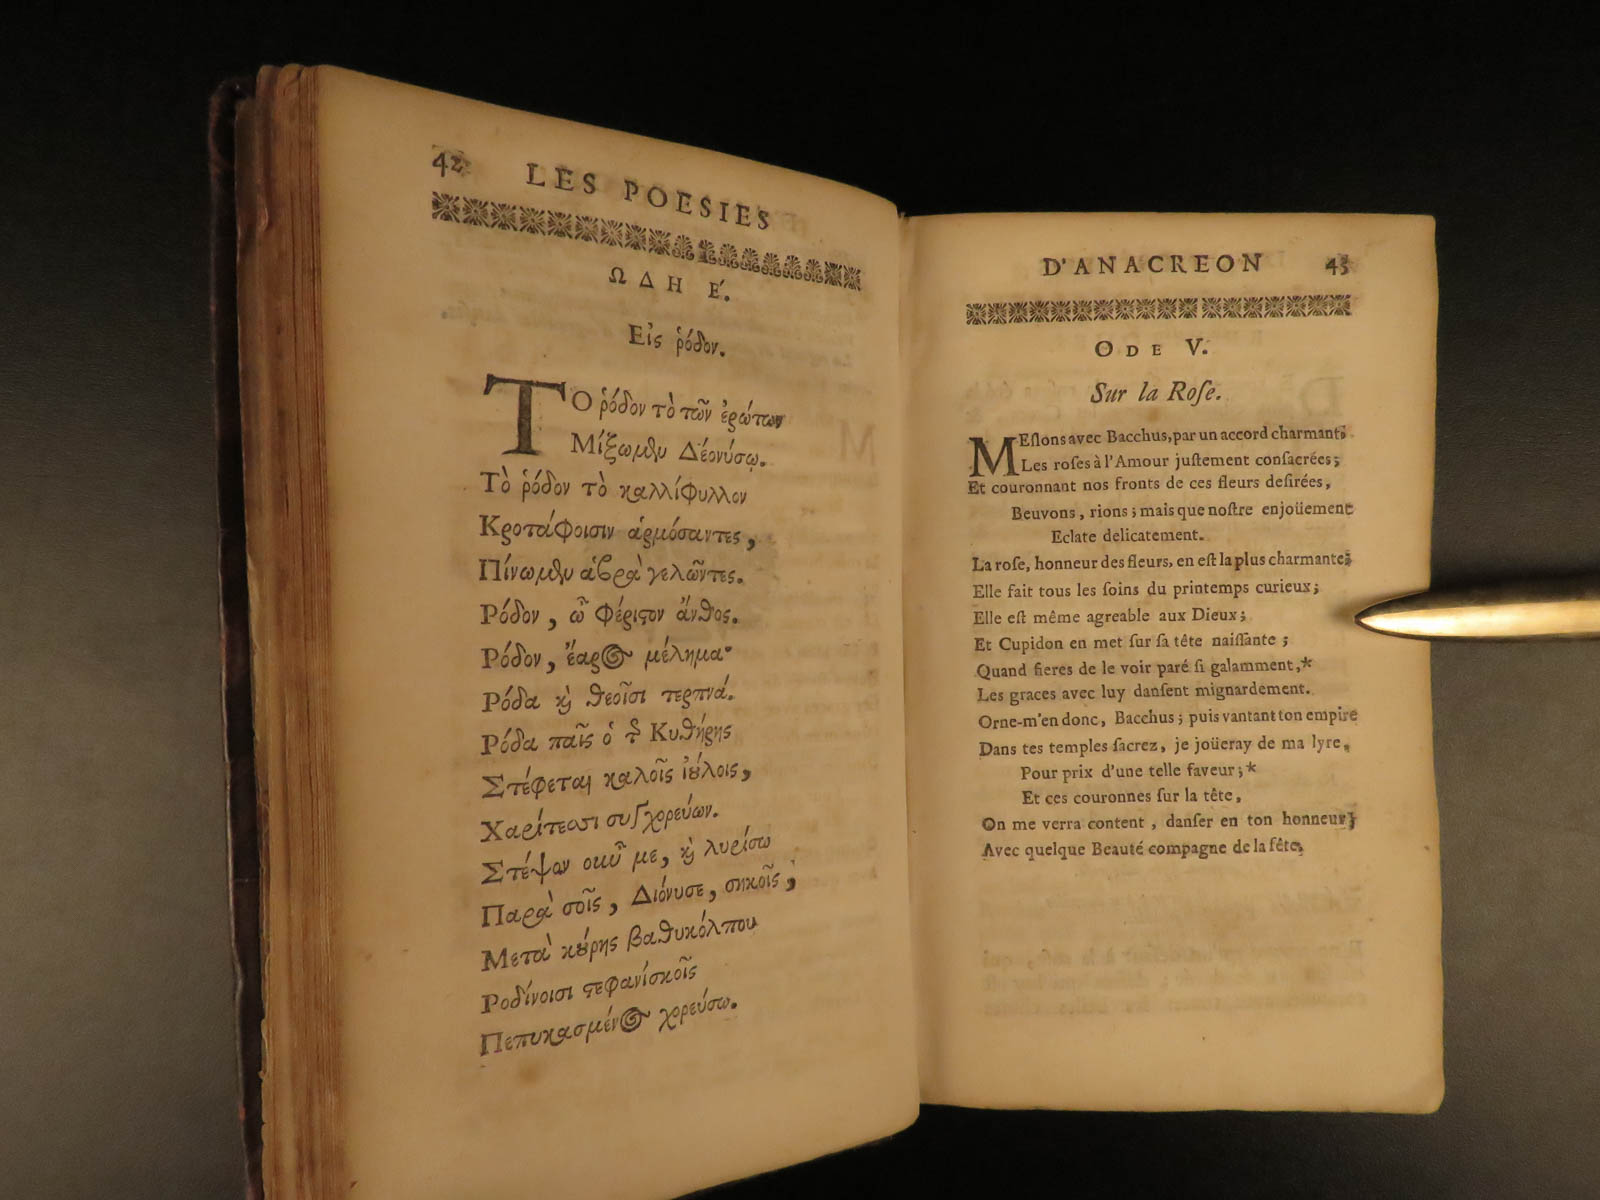 42 LES POESIES
ΩΔΗ Ε΄.
Εἰς ῥόδον.
ΤΟ ῥόδον τὸ τῶν ἐρώτων
Μίξωμϟυ Δἐονύσῳ.
Τὸ ῥόδον τὸ καλλίφυλλον
Κροτάφοισιν ἁρμόσαντες,
Πίνωμϟυ ἁβρὰ γελῶντες.
Ρόδον, ὦ φέριϛον ἄνθος.
Ρόδον, ἔαρος μέλημα·
Ρόδα ϗ θεοῖσι τερπνά.
Ρόδα παῖς ὁ τῆς Κυθήρης
Στέφεται καλοῖς ἰȣ́λοις,
Χαρίτεσσι συγχορεύων.
Στέψον οὖν με, ϗ λυρίσω
Παρὰ σοῖς, Διόνυσε, σηκοῖς,
Μετὰ κȣ́ρης βαθυκόλπου
Ροδίνοισι ϛεφανίσκοῖς
Πεπυκασμένος χορεύσω.
D'ANACREON 43
ODE V.
Sur la Roſe.
MEſlons avec Bacchus, par un accord charmant,
Les roſes à l'Amour juſtement conſacrées;
Et couronnant nos fronts de ces fleurs deſirées,
Beuvons, rions; mais que noſtre enjoüement
Eclate delicatement.
La roſe, honneur des fleurs, en eſt la plus charmante;
Elle fait tous les ſoins du printemps curieux;
Elle eſt même agreable aux Dieux;
Et Cupidon en met ſur ſa tête naiſſante;
Quand fieres de le voir paré ſi galamment,*
Les graces avec luy danſent mignardement.
Orne-m'en donc, Bacchus; puis vantant ton empire
Dans tes temples ſacrez, je joüeray de ma lyre,
Pour prix d'une telle faveur;*
Et ces couronnes ſur la tête,
On me verra content, danſer en ton honneur;
Avec quelque Beauté compagne de la fête,